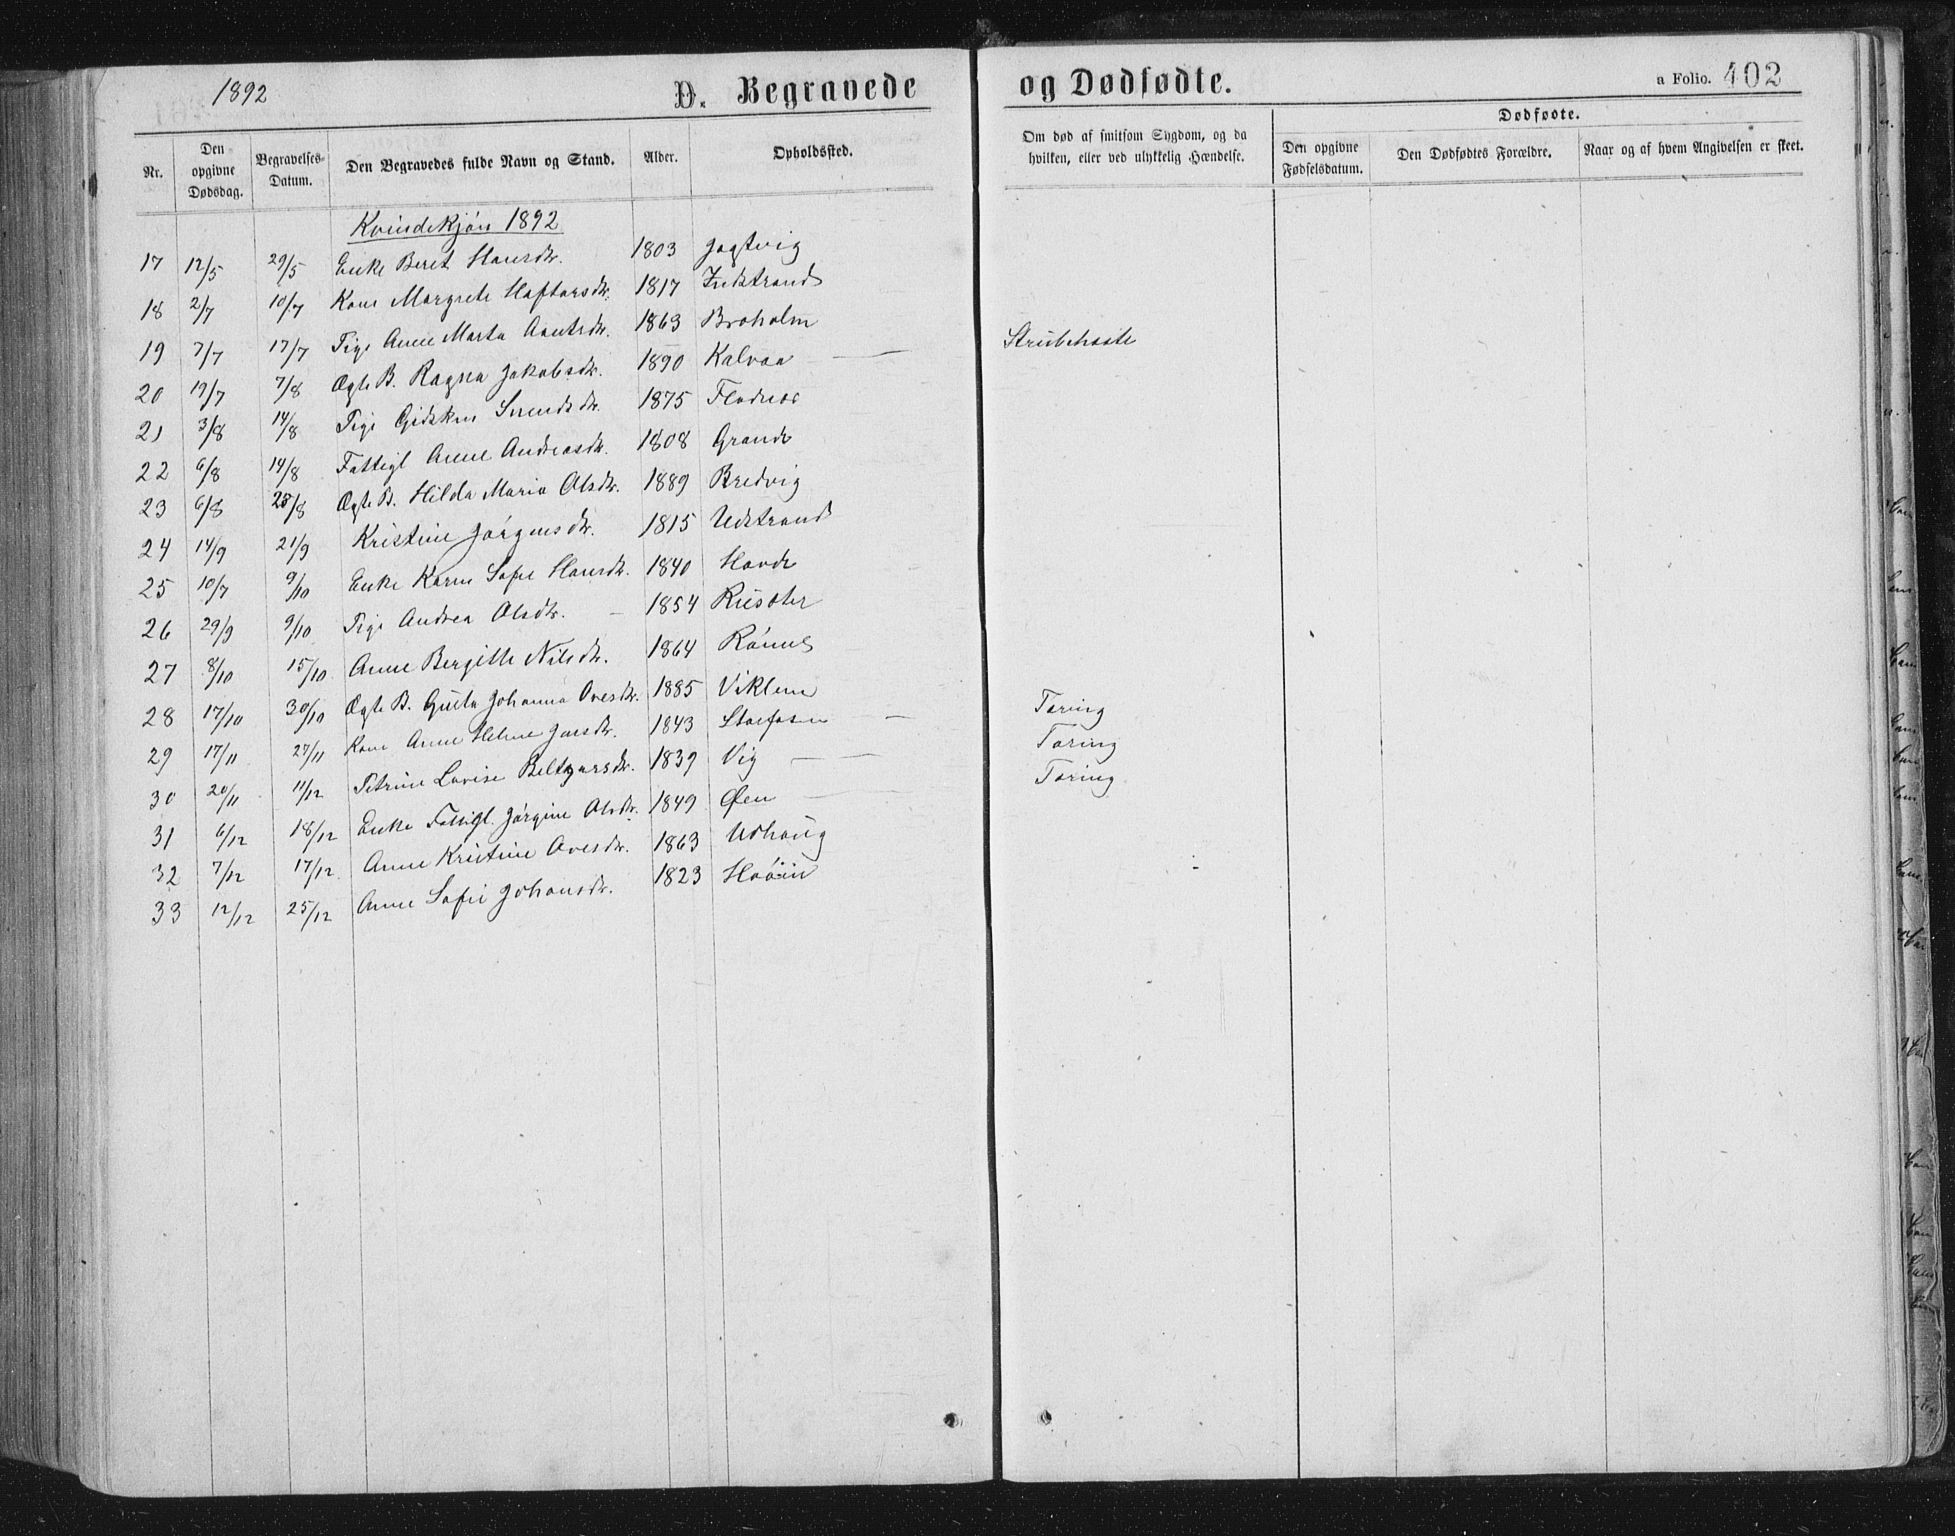 1892 D. Begravede og Dødfødte. a Folio. 402
Nr. Den opgivne Dødsdag. Begravelses-Datum. Den Begravedes fulde Navn og Stand. Alder. Opholdssted. Om død af smitsom Sygdom, og da hvilken, eller ved ulykkelig Hændelse. Dødfødte. Den opgivne Fødselsdatum. Den Dødfødtes Forældre. Naar og af hvem Angivelsen er skeet.
Kvindekjøn 1892
17 12/5 29/5 Enke Beret Hansdtr. 1803 Jøgtvig
18 2/7 10/7 Kone Margrete Haftorsdtr. 1817 Indstrand
19 7/7 17/7 Pige Anne Marta 1863 Broholm
20 19/7 7/8 Ægte B. Ragna Jakobsdtr. 1890 Kalvaa Strubehoste
21 3/8 14/8 Pige Gidsken 1875 Flødnes
22 6/8 14/8 Fattigl Anne Andreasdtr. 1808 Grande
23 6/8 /8 Ægte B. Hilda Maria Olsdtr. 1889 Bredvig
24 14/9 21/9 Kristine Jørgensdtr. 1815 Udstrand
25 10/7 9/10 Enke Karen Sofie Hansdtr. 1840 Hovde
26 29/9 9/10 Pige Andrea Olsdtr. 1854 Rusæter
27 8/10 15/10 Anne Bergitte Nilsdtr. 1864 Rønne
28 17/10 30/10 Ægte B. Gurta Johanna Ovesdtr. 1885 Viklem
29 17/11 27/11 Kone Anne Helene Jensdtr. 1843 Storfosen Tæring
30 20/11 11/12 Petrine Lovise Beltzersdtr. 1839 Vig Tæring
31 6/12 18/12 Enke Fattigl. Jørgine Olsdtr. 1849 Øen Tæring
32 7/12 17/12 Anne Kristine Ovesdtr. 1863 Udhaug
33 12/12 25/12 Anne Sofie Johansdtr. 1823 Hoøien